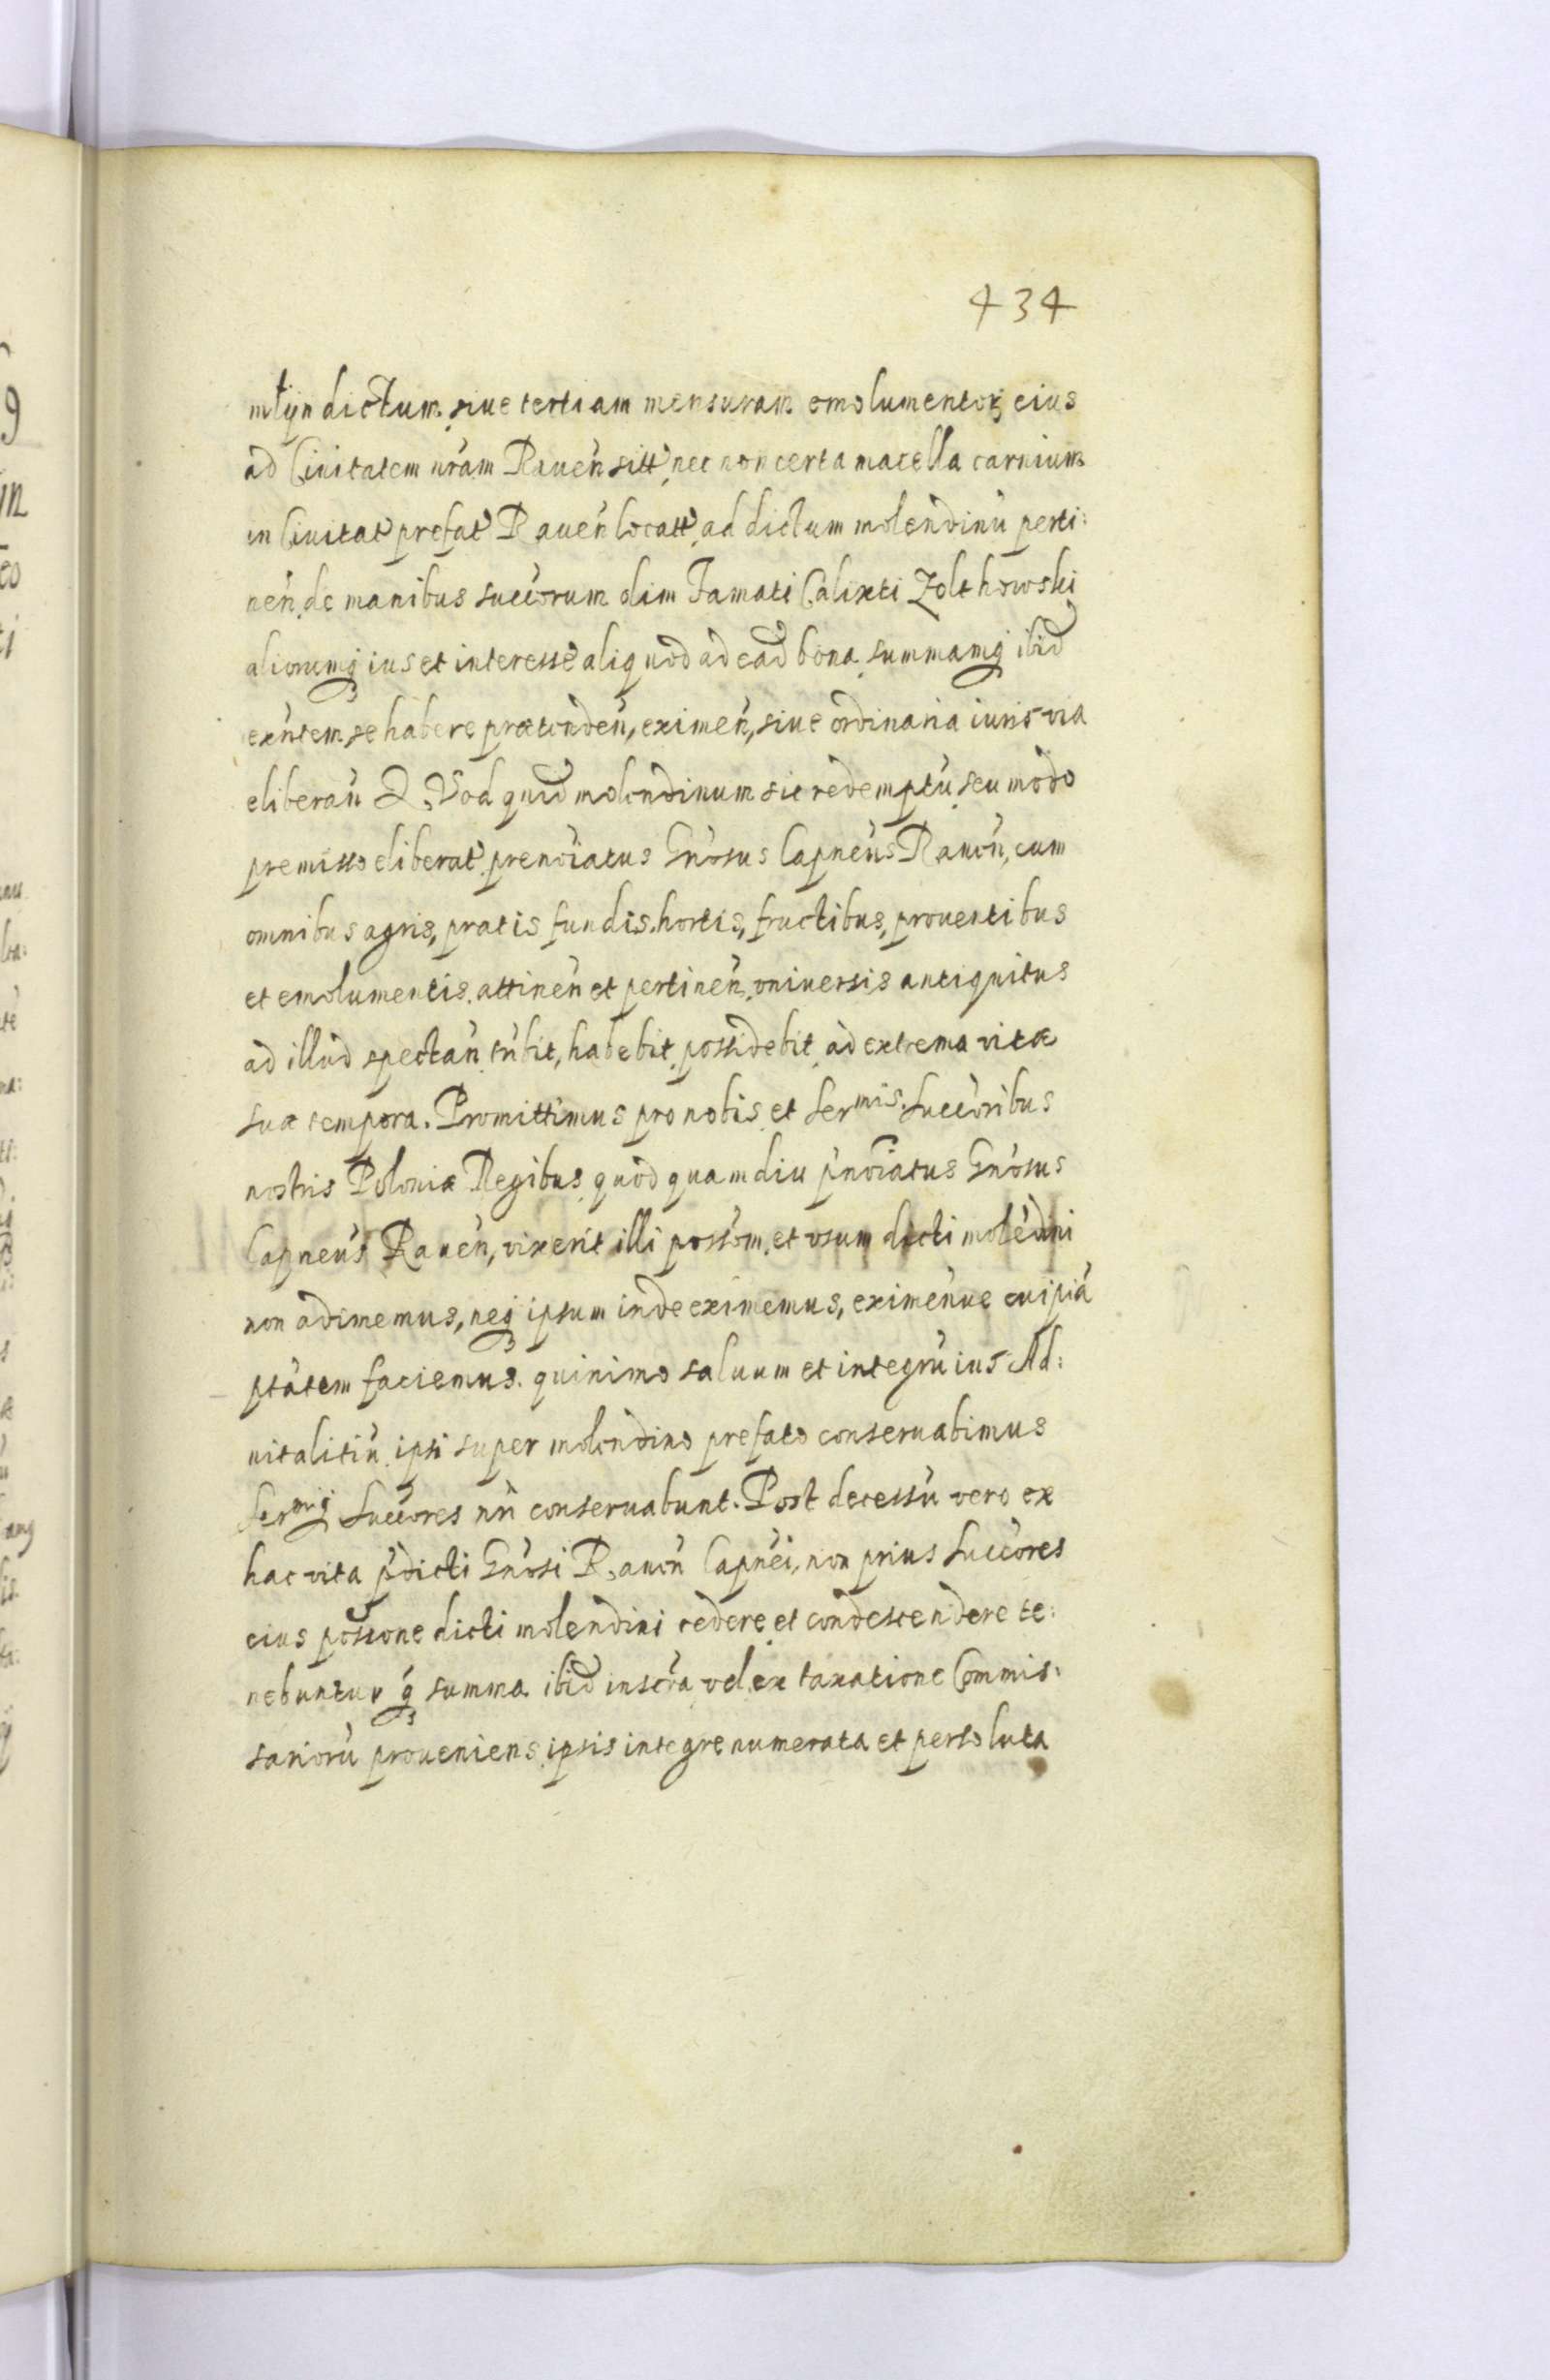 434
młyn dictum, siue tertiam mensuram emolumentoꝝ eius
ad Ciuitatem nr̃am Raueñ sitt̃, nec non certa macella carnium
in Ciuitat̃ prefat̃ Raueñ locatt̃, ad dictum molendinũ perti:
neñ, de manibus succ̃orum olim Famati Calixti Zolthowski
aliorumq̃ ius et interesse aliquod ad ead̃ bona, summamq̃ ibid̃
exñtem se habere prætendeñ, eximeñ, siue ordinaria iuris via
eliberañ Quod quid̃ molendinum sic redemptũ, seu modo
premisso eliberat̃, prenoĩatus Gñosus Capneũs Raueñ, cum
omnibus agris, pratis fundis, hortis, fructibus, prouentibus
et emolumentis, attineñ et pertineñ, vniuersis antiquitus
ad illud spectañ, tñbit, habebit, possidebit, ad extrema vitæ
suæ tempora. Promittimus pro nobis, et Ser^mis Succ̃oribus
nostris Poloniæ Regibus, quod quamdiu p̃noĩatus Gñosus
Capneũs Raueñ, vixerit illi possõm, et vsum dicti molẽdini
non adimemus, neq̃ ipsum inde eximemus, eximeñve cuipiã
ptãtem faciemus. quinimo saluum et integrũ ius Ad:
uitalitiũ, ipsi super molendino prefato conseruabimus
Ser^miq̃ Succ̃ores nr̃i conseruabunt. Post decessũ vero ex
hac vita p̃dicti Gñosi Raueñ Capnẽi, non prius Succ̃ores
eius possõne dicti molendini cedere, et condescendere te:
nebuntur q̃ summa ibid̃ inscr̃a, vel ex taxatione Commis:
sariorũ proueniens, ipsis integre numerata et persoluta